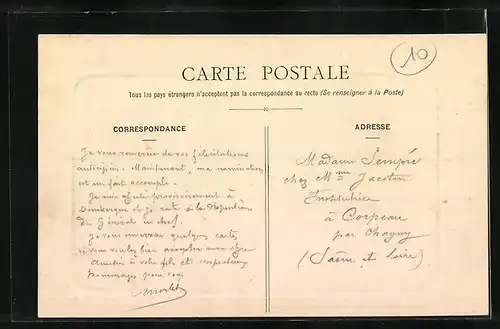 10
CARTE POSTALE
Tous les pays étrangers n'acceptent pas la correspondance au recto (Se renseigner à la Poste)
CORRESPONDANCE
Je vous remercie de vos félicitations
anticipées. Maintenant, ma nomination
est un fait accompli.
Je suis affecté provisoirement à
Dunkerque et je reste à la disposition
du Général en chef.
Je vous enverrai quelques cartes
si vous voulez bien accepter mon
Amitié à votre fils et respectueux
hommages pour vous
ADRESSE
Madame Sempré
chez Mme Jacotin
Institutrice
à Corpeau
par Chagny
(Saône et Loire)